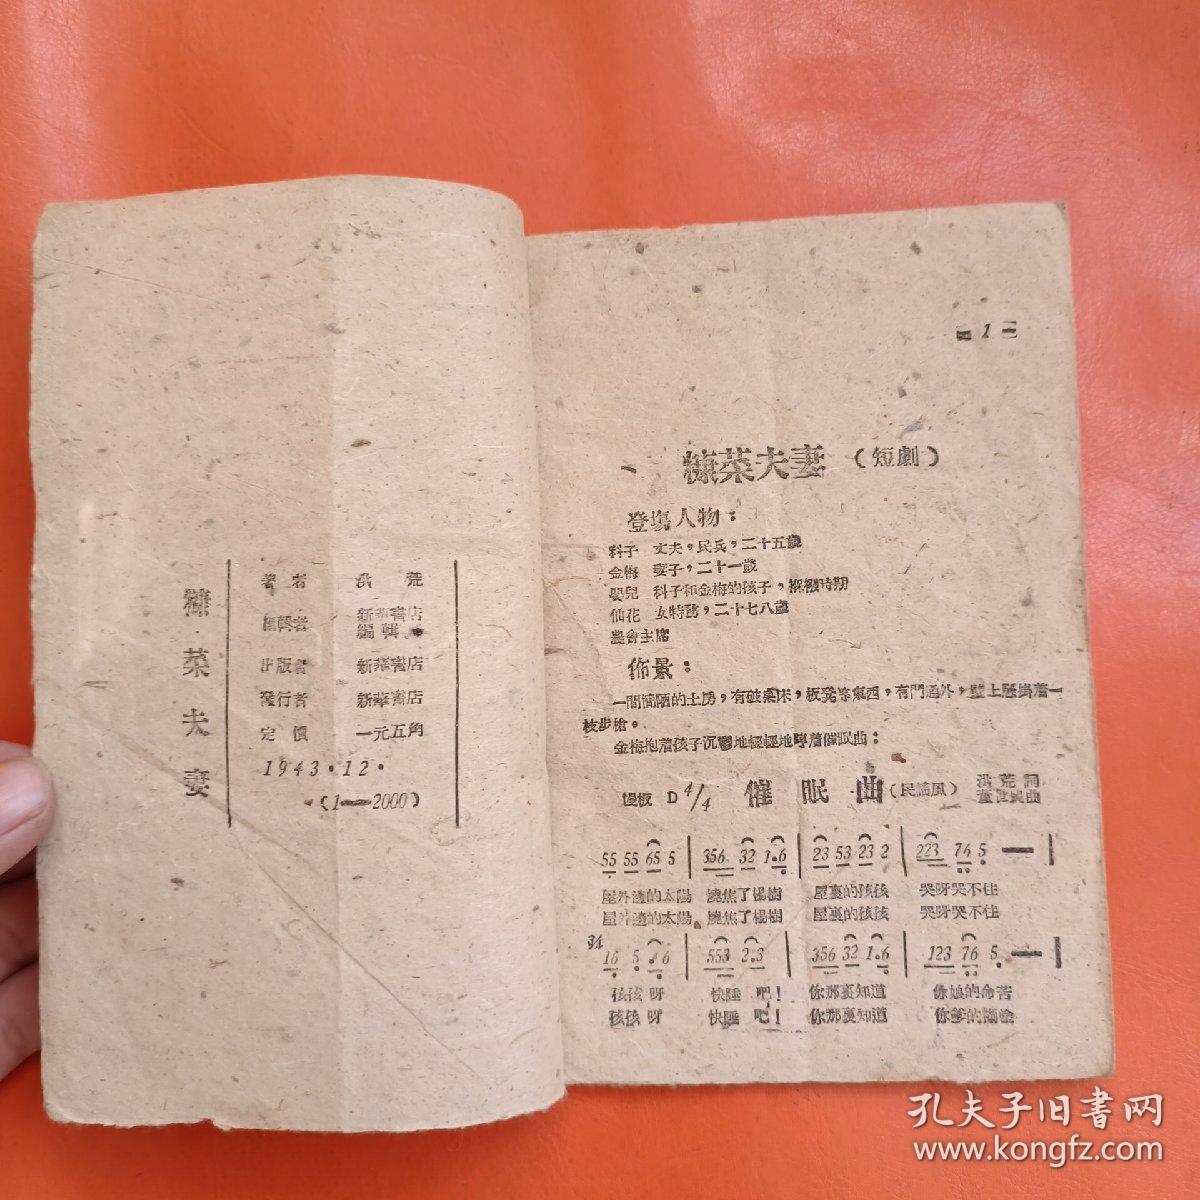 糠菜夫妻
著者 洪荒
編輯者 新華書店編輯部
出版者 新華書店
發行者 新華書店
定價 一元五角
1943·12·
(1—2000)
=1=
糠菜夫妻（短劇）
登場人物：
科子 丈夫，民兵，二十五歲
金梅 妻子，二十一歲
嬰兒 科子和金梅的孩子，襁褓時期
仙花 女特務，二十七八歲
農會主席
佈景：
一間簡陋的土房，有破桌床，板凳等東西，有門通外，壁上懸掛着一
枝步槍。
金梅抱着孩子沉鬱地輕輕地哼着催眠曲：
慢板 D 4/4 催眠曲（民謠風） 洪荒詞
曲
55 55 65 5 | 356 32 1·6 | 23 53 23 2 | 223 76 5 — |
屋外邊的太陽 燒焦了楊樹 屋裏的孩孩 哭呀哭不住
屋外邊的太陽 燒焦了楊樹 屋裏的孩孩 哭呀哭不住
16 5 6 | 553 2·3 | 356 32 1·6 | 123 76 5 — |
孩孩呀 快睡吧！ 你那裏知道 你娘的命苦
孩孩呀 快睡吧！ 你那裏知道 你爹的糊塗
孔夫子旧书网
www.kongfz.com